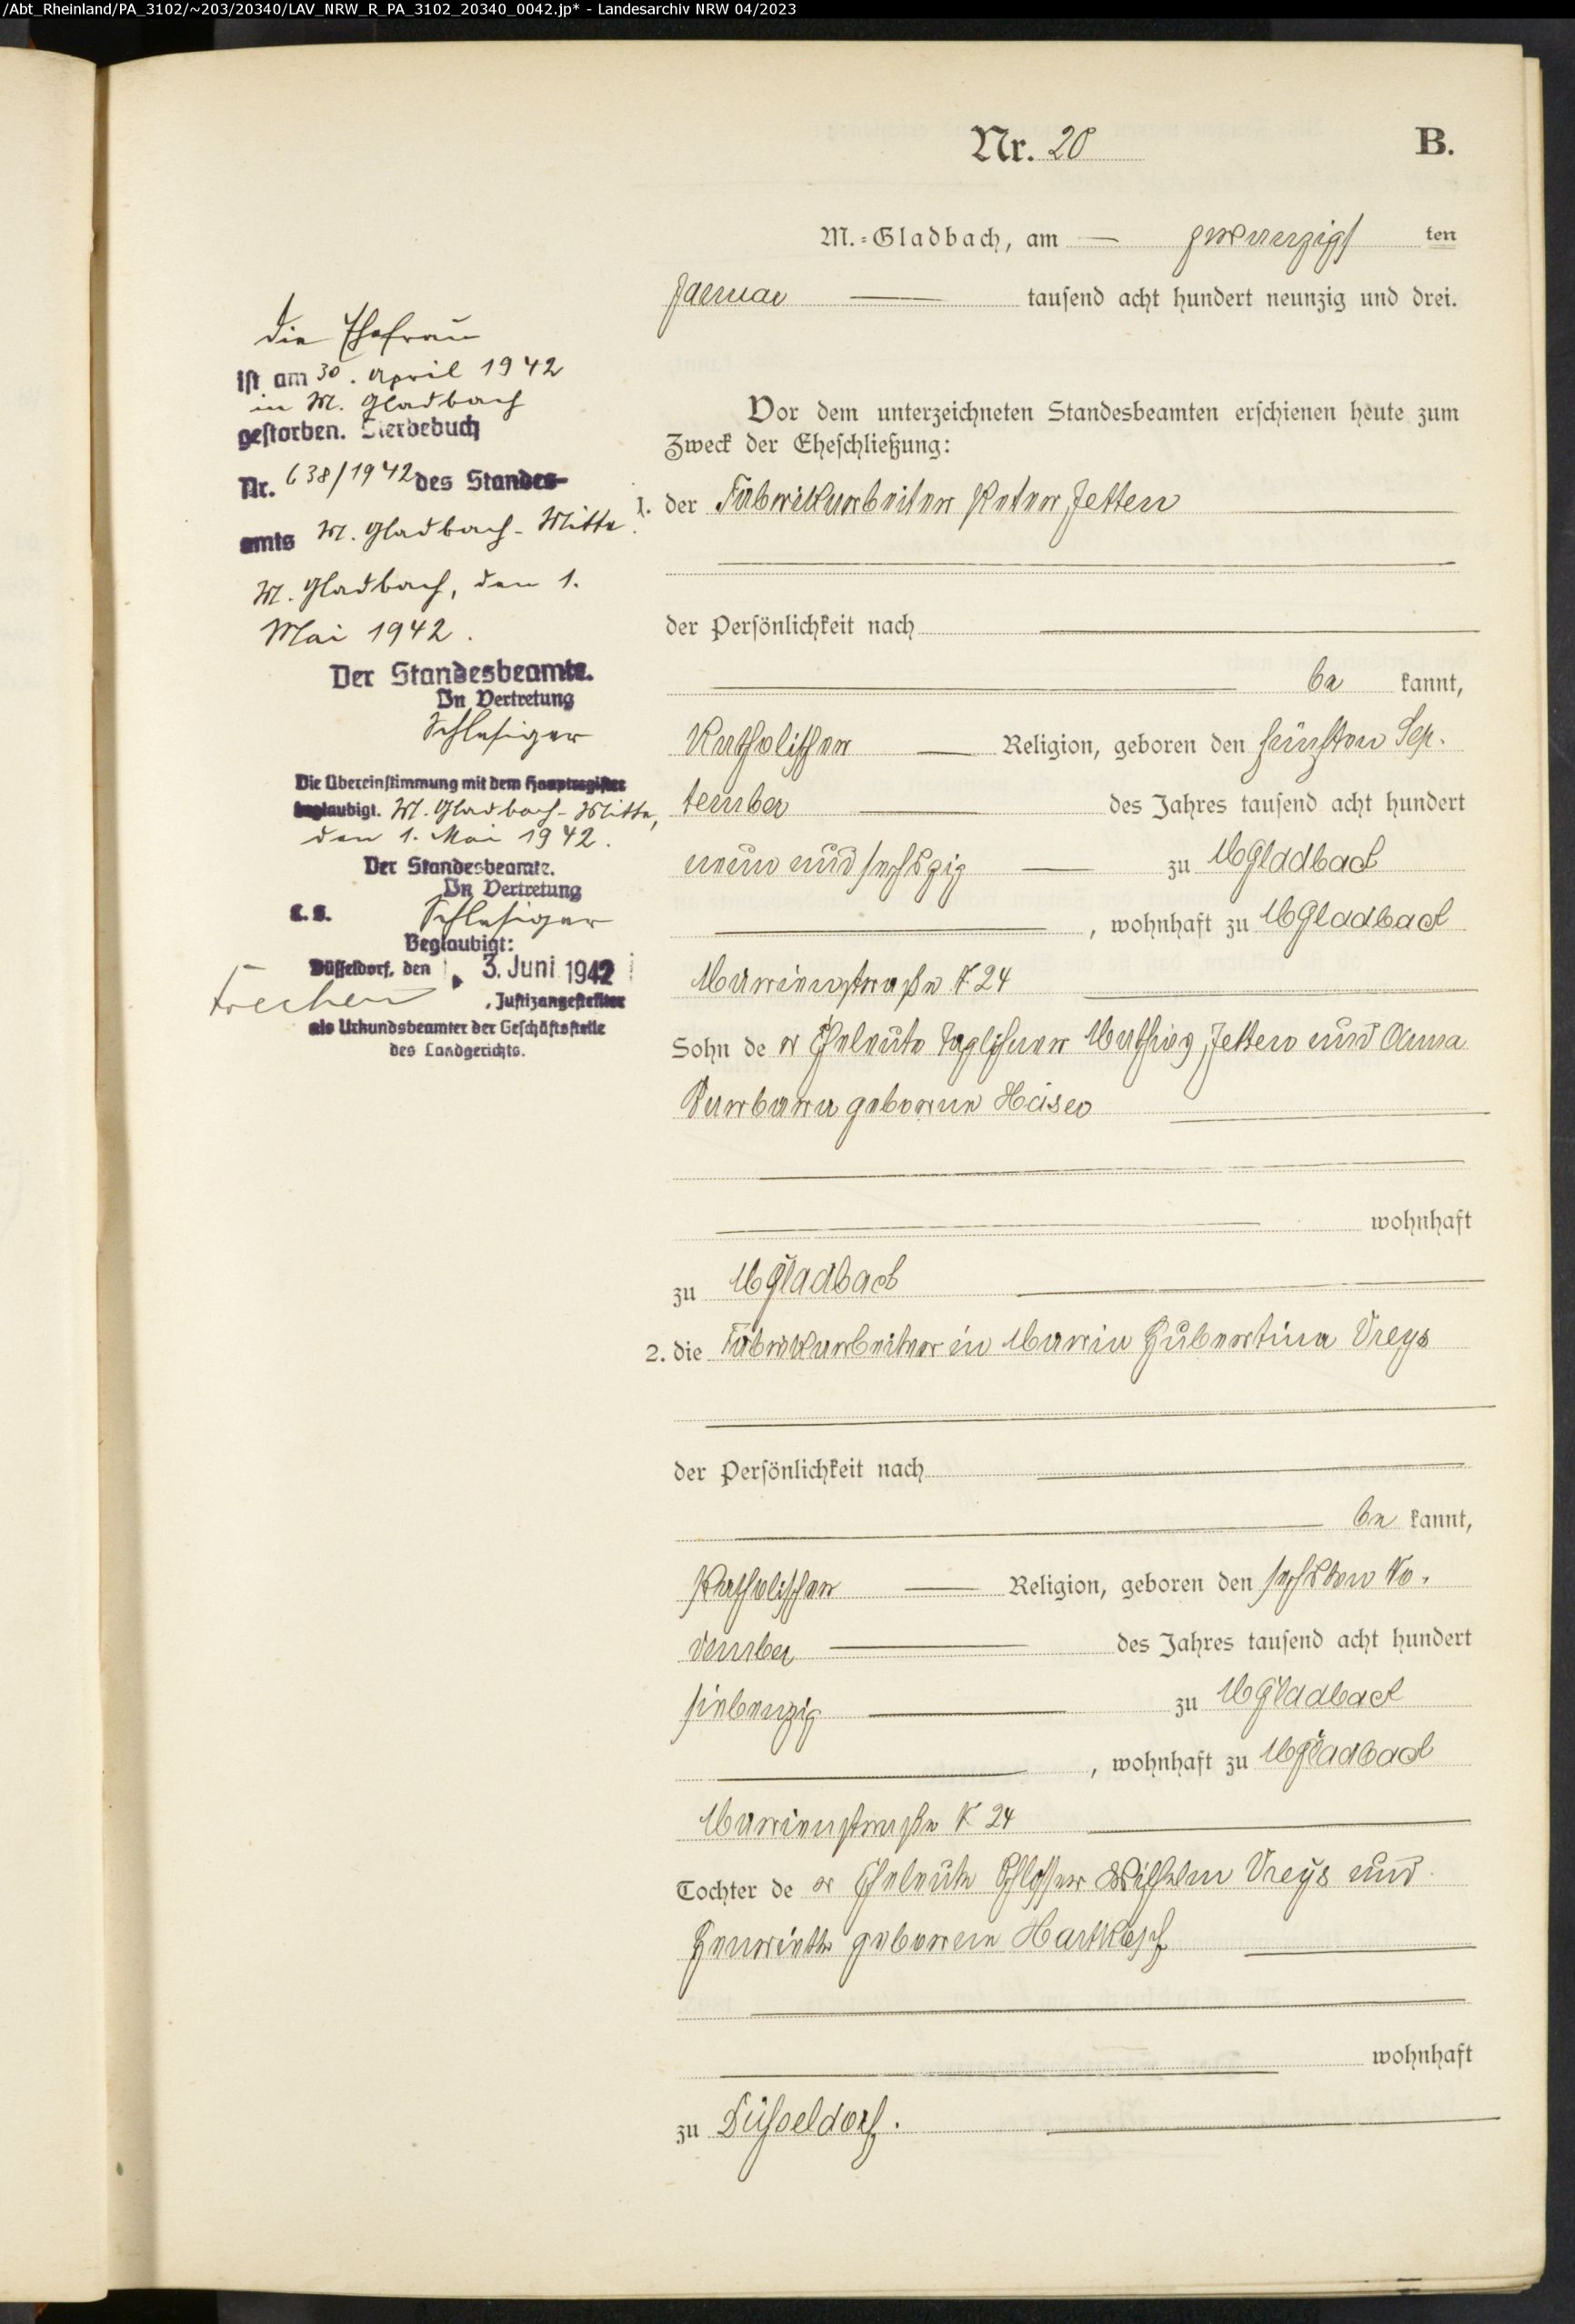 /Abt_Rheinland/PA_3102/~203/20340/LAV_NRW_R_PA_3102_20340_0042.jp* - Landesarchiv NRW 04/2023
Nr. 20
B.
M.=Gladbach, am zwanzigsten
Januar tausend acht hundert neunzig und drei.
Vor dem unterzeichneten Standesbeamten erschienen heute zum
Zweck der Eheschließung:
1. der Fabrikarbeiter Peter Jetten
der Persönlichkeit nach
be kannt,
katholischer Religion, geboren den fünften Sep-
tember des Jahres tausend acht hundert
neun und sechszig zu MGladbach
, wohnhaft zu MGladbach
Marienstraße 24
Sohn de r Eheleute Taglöhner Mathias Jetten und Anna
Barbara geborene
wohnhaft
zu MGladbach
2. die Fabrikarbeiterin Maria Hubertina Vreys
der Persönlichkeit nach
be kannt,
katholischer Religion, geboren den sechsten No-
vember des Jahres tausend acht hundert
siebenzig zu MGladbach
, wohnhaft zu MGladbach
Marienstraße 24
Tochter de r Eheleute Schlosser Wilhelm Vreys und
Henriette geborene Hartkopf
wohnhaft
zu Düsseldorf.
die Ehefrau
ist am 30. April 1942
in M. Gladbach
gestorben. Sterbebuch
Nr. 638/1942 des Standes-
amts M. Gladbach-Mitte.
M. Gladbach, den 1.
Mai 1942.
Der Standesbeamte.
In Vertretung
Schlesiger
Die Übereinstimmung mit dem Hauptregister
beglaubigt. M. Gladbach-Mitte,
den 1. Mai 1942.
Der Standesbeamte.
In Vertretung
L. S. Schlesiger
Beglaubigt:
Düsseldorf, den 3. Juni 1942
Frechen, Justizangestellter
als Urkundsbeamter der Geschäftsstelle
des Landgerichts.